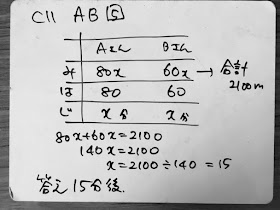 C11 AB 5
Aさん Bさん
み 80x 60x → 合計
2100m
は 80 60
じ x分 x分
80x+60x=2100
140x=2100
x=2100÷140=15
答え 15分後.